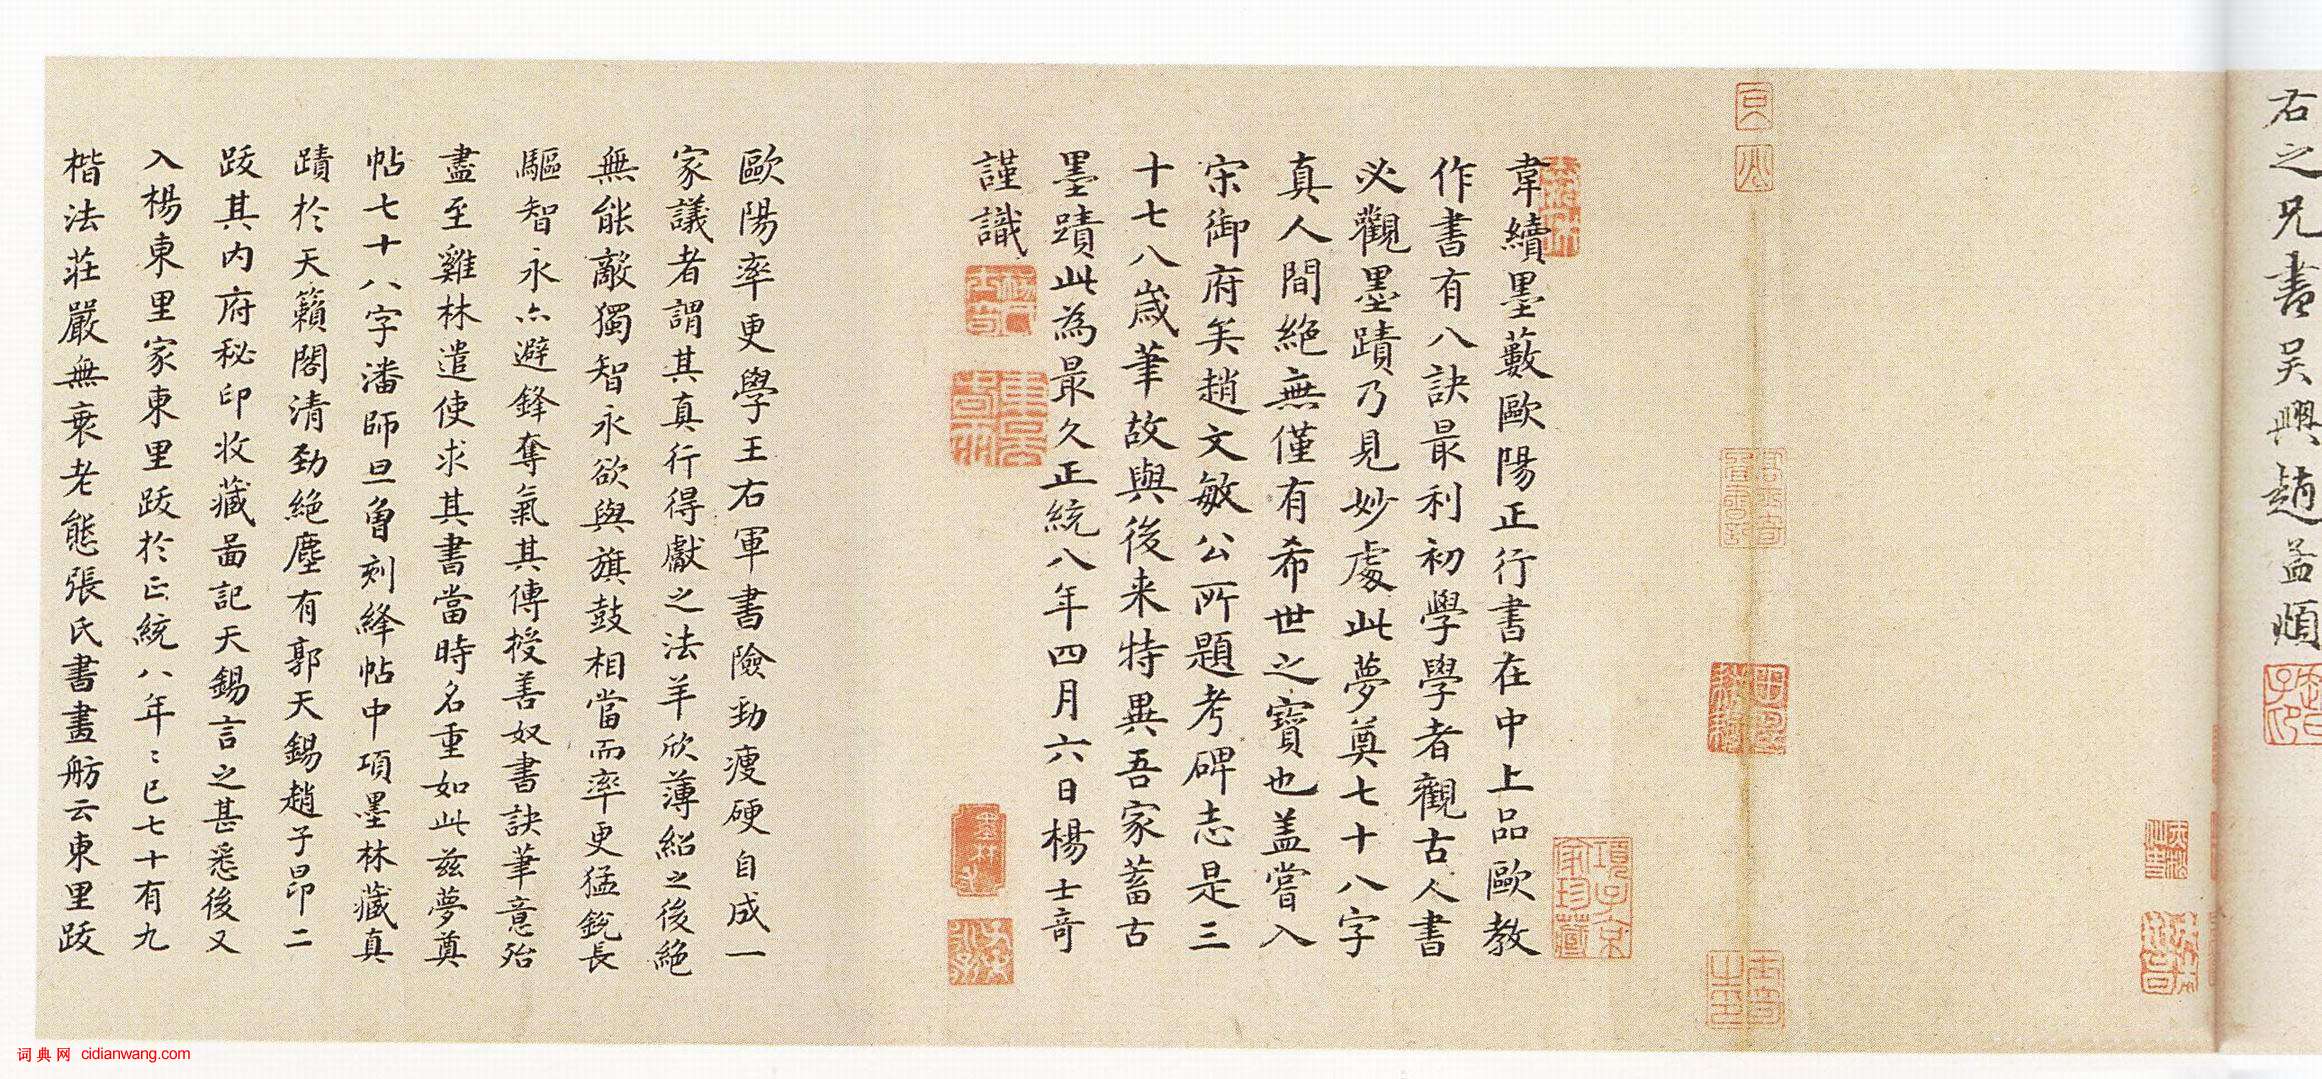 右之兄書吳興趙孟頫
韋續墨藪歐陽正行書在中上品歐教
作書有八訣最利初學學者觀古人書
必觀墨蹟乃見妙處此夢奠七十八字
真人間絕無僅有希世之寶也盖嘗入
宋御府矣趙文敏公所題考碑志是三
十七八歲筆故與後来特異吾家蓄古
墨蹟此為最久正統八年四月六日楊士奇
謹識
歐陽率更學王右軍書險勁瘦硬自成一
家議者謂其真行得獻之法羊欣薄紹之後絕
無能敵獨智永欲與旗鼓相當而率更猛銳長
驅智永亦避鋒奪氣其傳授善奴書訣筆意殆
盡至雞林遣使求其書當時名重如此兹夢奠
帖七十八字潘師旦曾刻絳帖中項墨林藏真
蹟於天籟閣清勁絕塵有郭天錫趙子昂二
跋其內府秘印收藏啚記天錫言之甚悉後又
入楊東里家東里跋於正統八年年已七十有九
楷法莊嚴無衰老態張氏書畫舫云東里跋
词典网 cidianwang.com